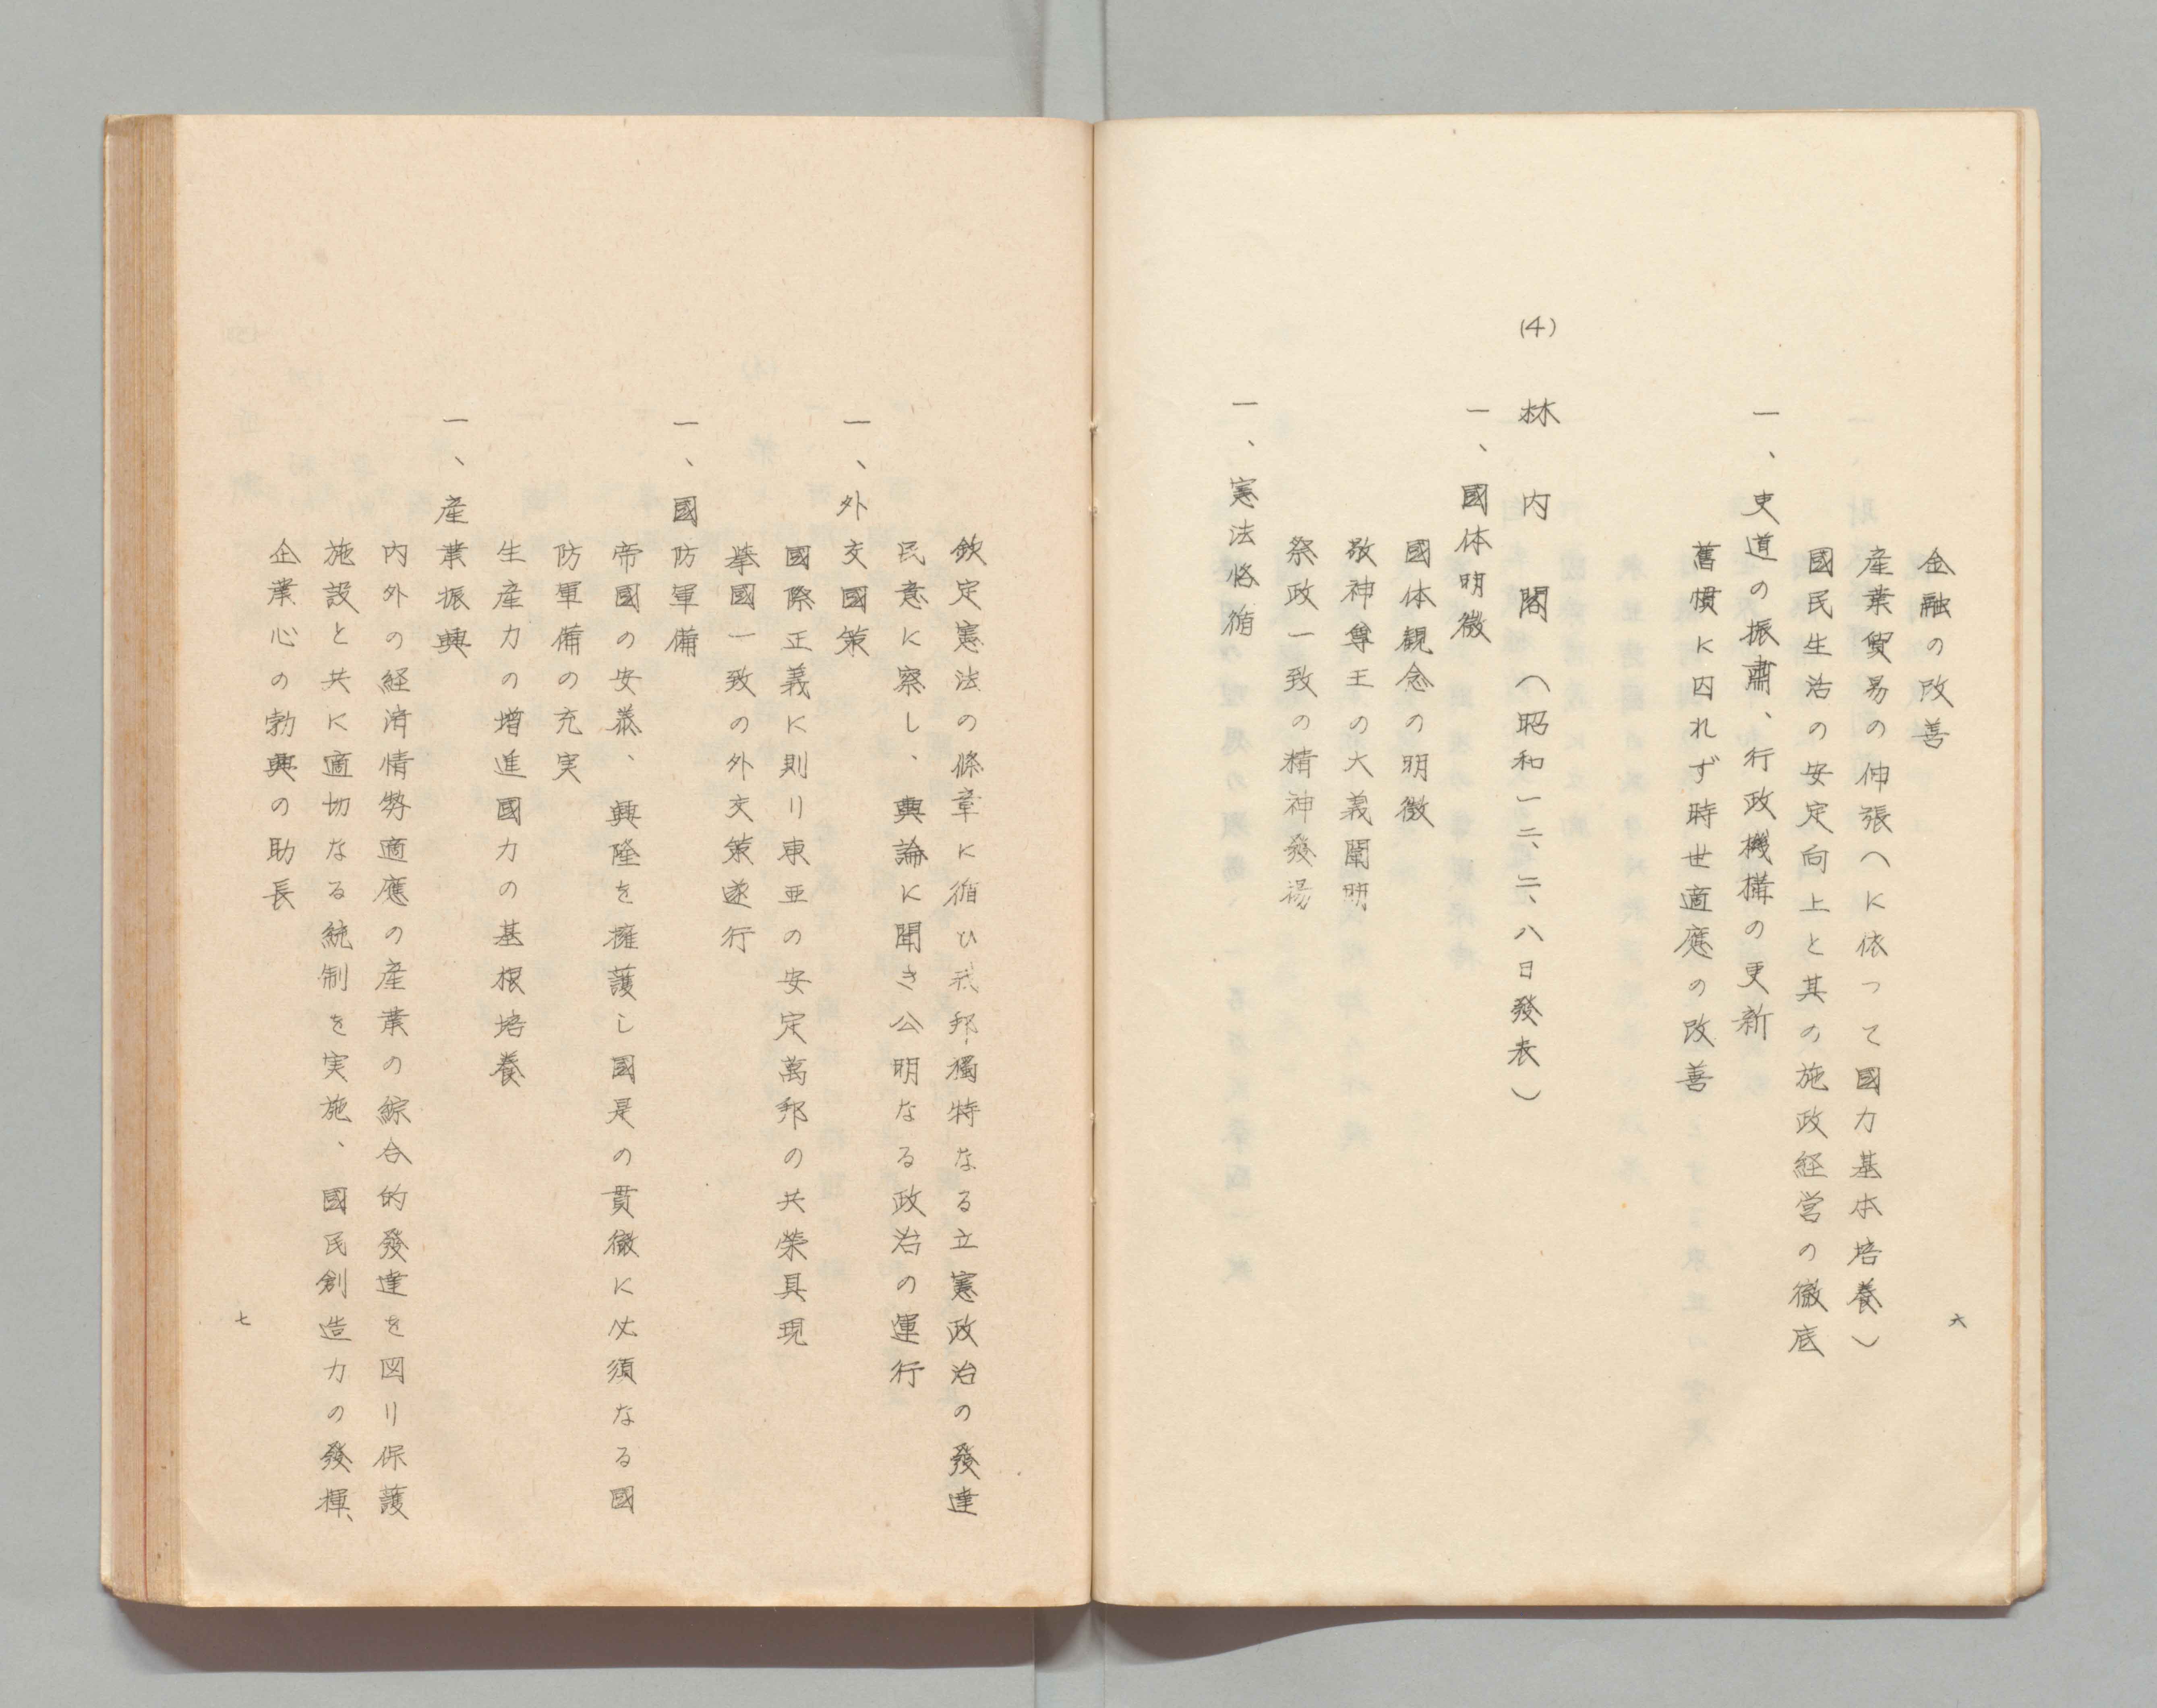 金融の改善
産業貿易の伸張へに依って國力基本培養)
國民生活の安定向上と其の施政経営の徹底
一、吏道の振肅、行政機構の更新
舊慣に囚れず時世適應の改善
(4) 林内閣 (昭和一二、二、八日發表)
一、國体明徴
國体観念の明徴
敬神尊王の大義闡明
祭政一致の精神發揚
一、憲法恪循
六
欽定憲法の條章に循ひ我邦獨特なる立憲政治の發達
民意に察し、輿論に聞き公明なる政治の運行
一、外交國策
國際正義に則り東亜の安定萬邦の共榮具現
擧國一致の外交策遂行
一、國防軍備
帝國の安泰、興隆を擁護し國是の貫徹に必須なる國
防軍備の充実
生産力の増進國力の基根培養
一、産業振興
内外の経済情勢適應の産業の綜合的發達を図り保護
施設と共に適切なる統制を実施、國民創造力の發揮、
企業心の勃興の助長
七